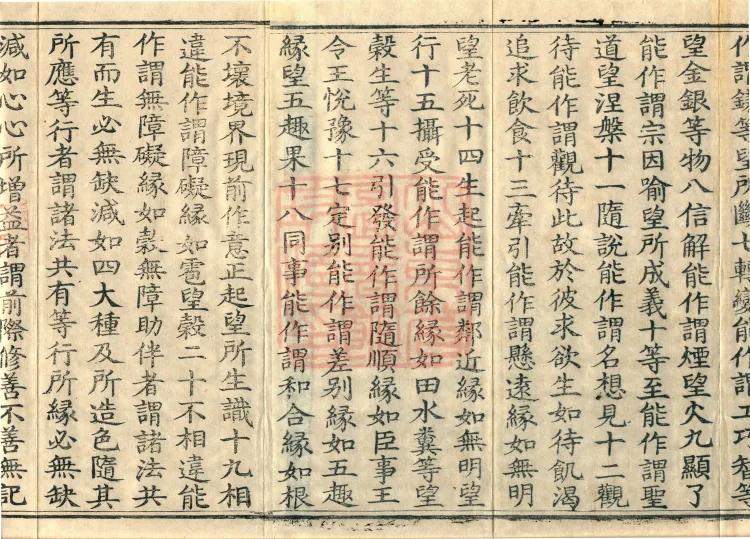 作謂鎌等望所斷七轉變能作謂工巧智等
望金銀等物八信解能作謂煙望火九顯了
能作謂宗因喻望所成義十等至能作謂聖
道望涅槃十一隨說能作謂名想見十二觀
待能作謂觀待此故於彼求欲生如待飢渴
追求飲食十三牽引能作謂懸遠緣如無明
望老死十四生起能作謂鄰近緣如無明望
行十五攝受能作謂所餘緣如田水糞等望
穀生等十六引發能作謂隨順緣如臣事王
令王悅豫十七定別能作謂差別緣如五趣
緣望五趣果十八同事能作謂和合緣如根
不壞境界現前作意正起望所生識十九相
違能作謂障礙緣如雹望穀二十不相違能
作謂無障礙緣如穀無障助伴者謂諸法共
有而生必無缺減如四大種及所造色隨其
所應等行者謂諸法共有等行所緣必無缺
減如心心所增益者謂前際修善不善無記